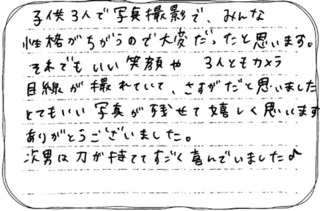 子供3人で写真撮影で、みんな
性格がちがうので大変だったと思います。
それでもいい笑顔や 3人ともカメラ
目線が撮れていて、さすがだと思いました
とてもいい写真が残せて嬉しく思います
ありがとうございました。
次男は刀が持ててすごく喜んでいました♪